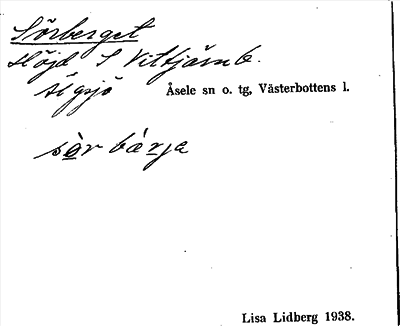 Sörberget
Höjd S Vittjärn b.
Älgsjö Åsele sn o. tg, Västerbottens l.
sò̤r bár̤ja
Lisa Lidberg 1938.